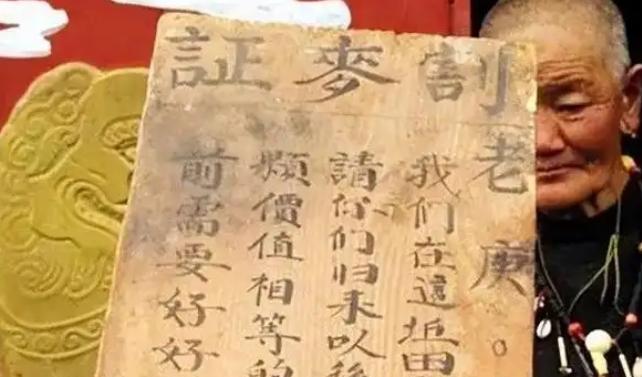 割麥証
老庚。
我们在這坵田
請你们归来以後
類價值相等的
前需要好好